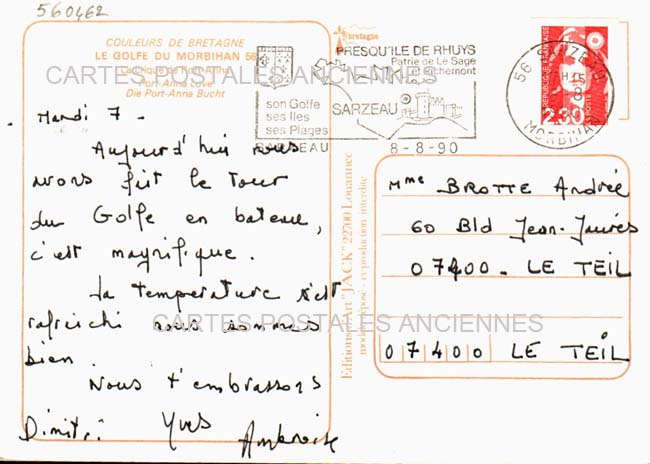 560462
COULEURS DE BRETAGNE
LE GOLFE DU MORBIHAN 56
Port-Anna cove
Die Port-Anna Bucht
bretagne
PRESQU'ILE DE RHUYS
Patrie de Le Sage
et Richemont
son Golfe
ses Iles
ses Plages
SARZEAU
SARZEAU
8-8-90
56 SARZEAU
MORBIHAN
2,30
CARTES POSTALES ANCIENNES
Mardi 7 -
Aujourd'hui nous
avons fait le tour
du Golfe en bateau,
c'est magnifique.
La température s'est
rafraichi nous sommes
bien
Nous t'embrassons
Dimitri Yves Ambroise
Editions d'Art "JACK" 22700 Louannec
modèle déposé - reproduction interdite
Mme BROTTE Andrée
60 Bld Jean-Jaurès
07400 - LE TEIL
07400 LE TEIL
CARTES POSTALES ANCIENNES